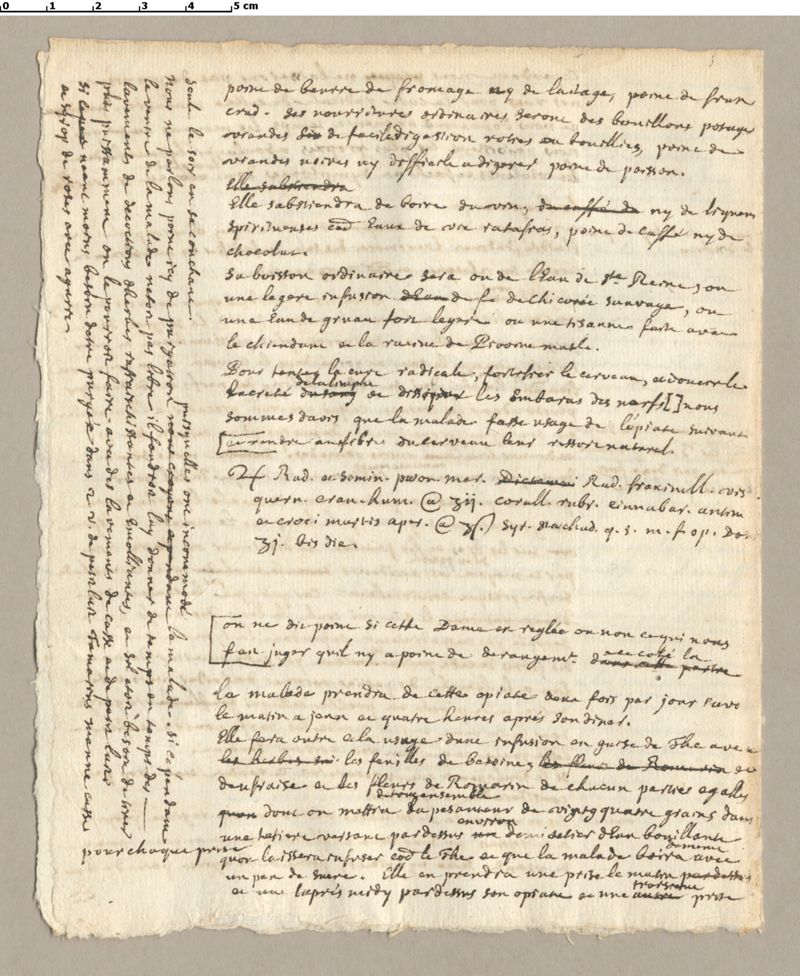 0 1 2 3 4 5 cm
poine de beurre de fromage ny de laitage, poine de fruit
crud. Ses nourritures ordinaires seront des bouillons potages
viandes de facile digestion roties ou bouillies, poine de
viandes noires ny difficile a digerer poine de poisson.
Elle sabstiendra
Elle sabstiendra de boire du vin, du caffé du ny de liqueurs
spiritueuses Eaux de vie ratafias, poine de caffé ny de
chocolat.
Sa boisson ordinaire sera ou de l'Eau de Ste Reine, ou
une legere infusion de de chicorée sauvage, ou
une Eau de gruau fort legere ou une tisanne faite avec
le chiendant et la racine de Pivoine masle.
Pour la cure radicale, fortifier le cerveau, adoucir le
de la limphe
lacreté du sang et dissiper les Embaras des nerfs [ ] nous
sommes davis que la malade fasse usage de l'opiate suivant
[et rendre aux fibres du cerveau leur ressort naturel.
Rad. et semin. pœon. mar. Rad. fraxinell. vis
quern. cran. hum. @ ʒij. corall. rubr. cinnabar. antim
et croci martis aper. @ ʒ syr. q. s. m. f. op. Dos
ʒj. bis die.
on ne dit poine si cette Dame est reglée ou non ce qui nous
fait juger quil ny a poine de derangemt. de ce coté la
dans cette partie
la malade prendra de cette opiate deux fois par jour savoir
le matin a jeun et quatre heures aprés son diner.
Elle fera outre cela usage dune infusion en guise de Thé avec
les herbes les feuilles de betoine, les fleurs de Romarin et
deufraise et les fleurs de Romarin de chacun parties egalles
ensemble
dont on mettra la pesanteur de vingt quatre grains dans
environ
une tetiere versant par dessus demi setier dEau bouillante
quon laissera infuser le Thé et que la malade boira avec
un peu de sucre. Elle en prendra une prise le matin par dessus
troisieme
et une laprés midy par dessus son opiate et une autre prise
pour chaque prise
seule le soir en se couchant.
puisquelles ont incommodé
nous ne parlons poine icy de purgation nous la malade. Si cependant
le ventre de la malade netoit pas libre il faudroit luy donner de temps en temps des
lavements de decoctions dherbes rafraichissantes et Emollientes, et sil etoit besoin de tirer
plus puissamment on le pourroit faire avec des lavements de casse et de petit lait
Si neant moins besoin detre purgée dans 2 v. de petit lait Tamarins manne casse
et syrop de roses avec agaric